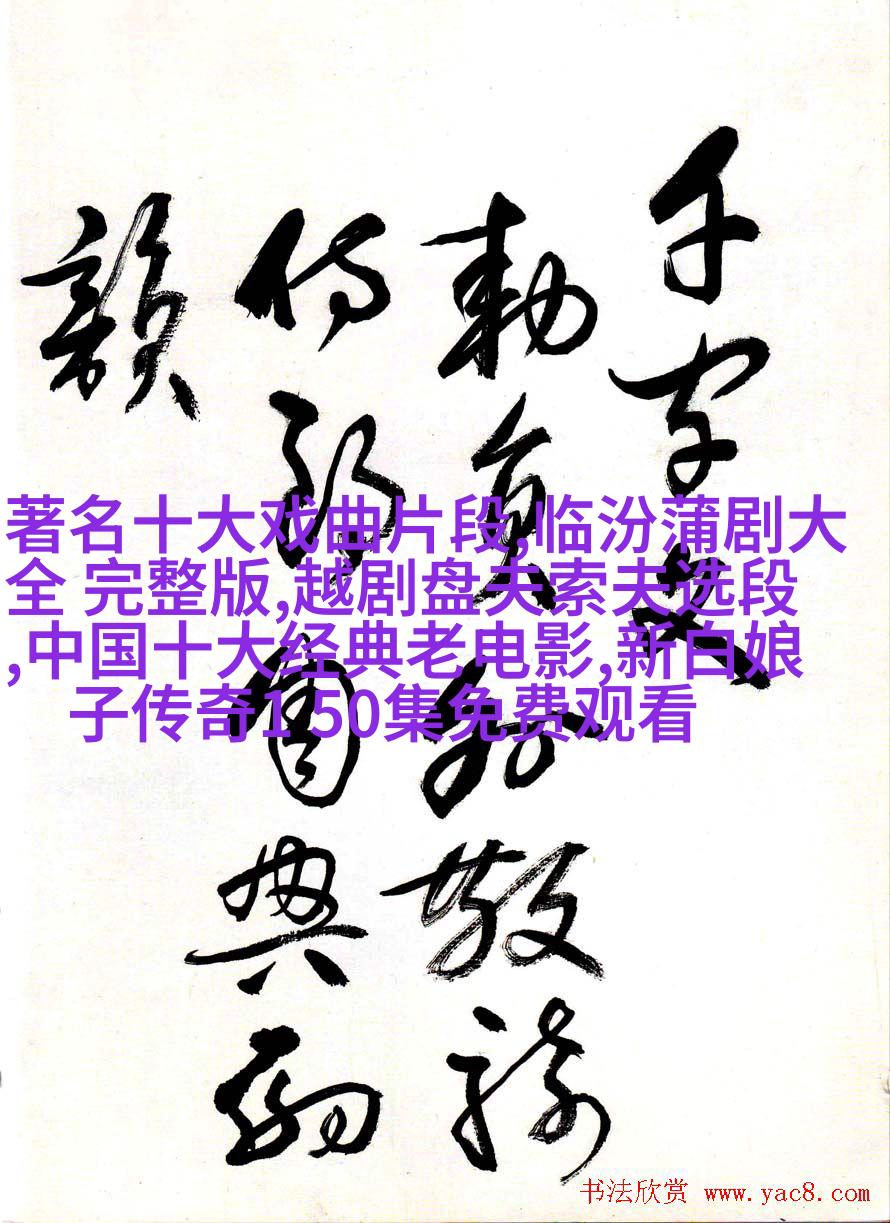 千字文
勅員外散騎
侍郎周興嗣
韻
著名十大戏曲片段,临汾蒲剧大
全 完整版,越剧盘夫索夫选段
,中国十大经典老电影,新白娘
子传奇1 50集免费观看
书法欣赏 www.yac8.com